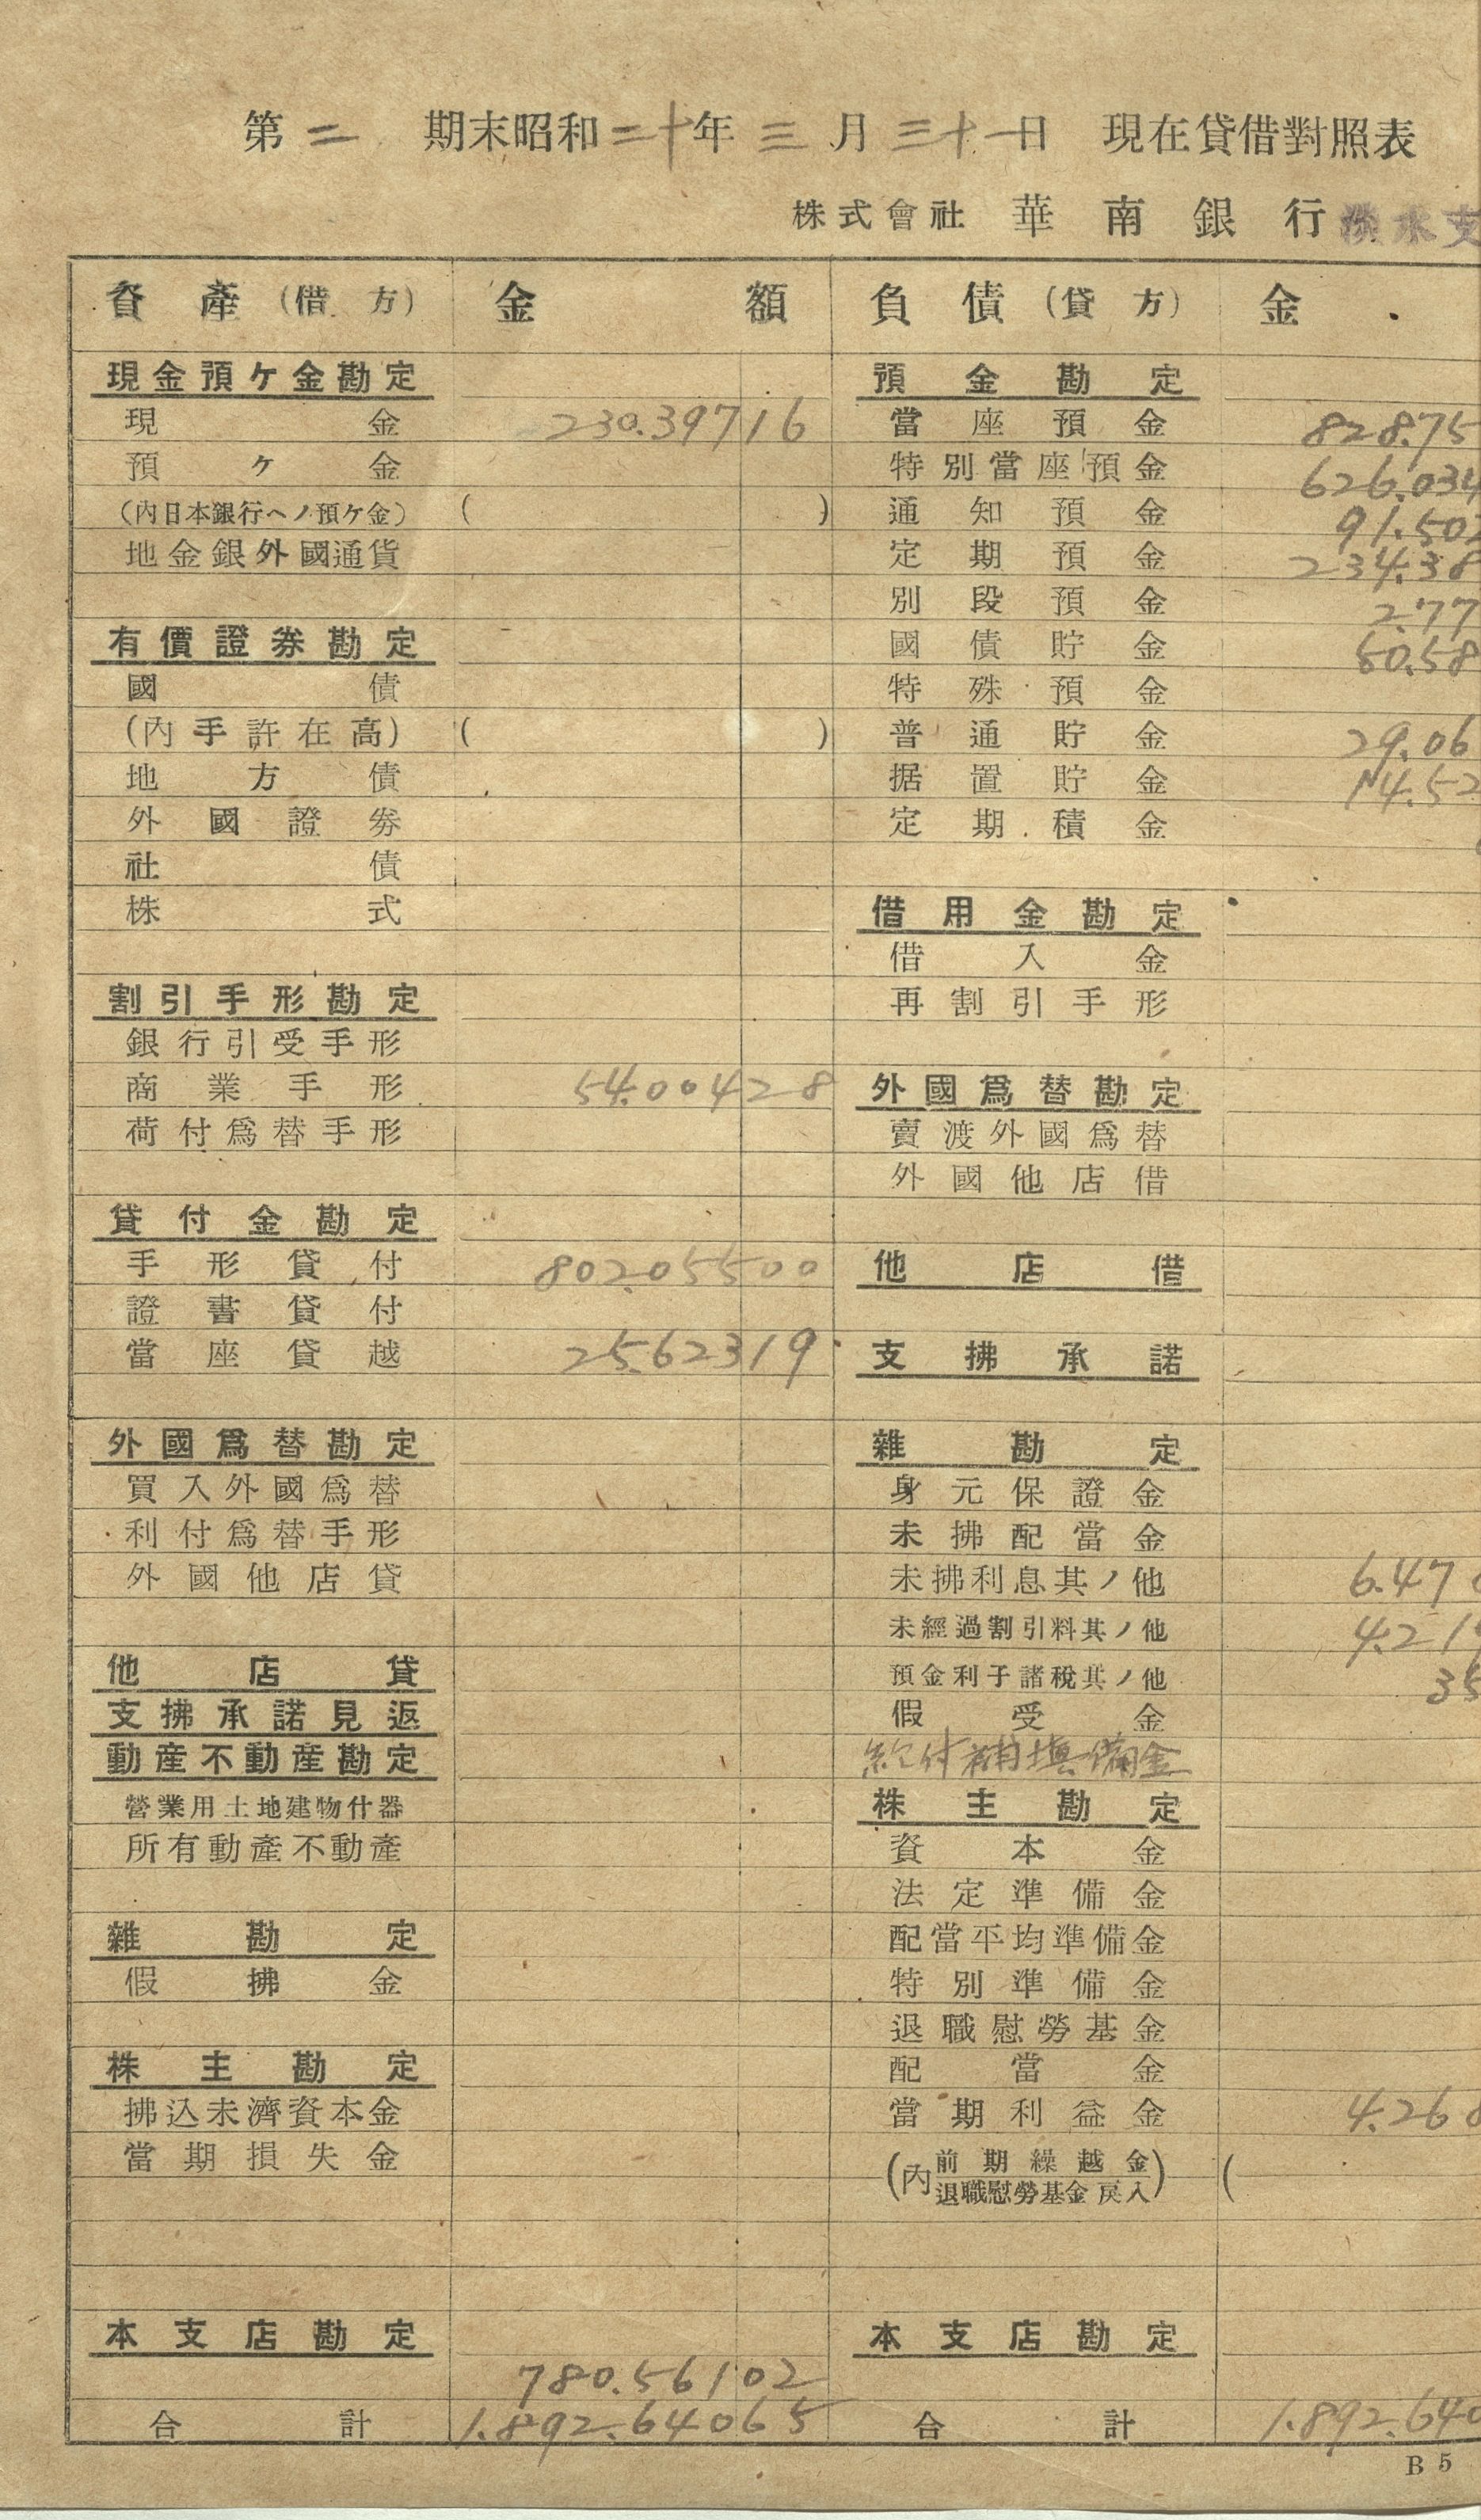 第二 期末昭和二十年三月三十一日 現在貸借對照表
株式會社 華南銀行 淡水支
資產(借方) 金額 負債(貸方) 金
現金預ケ金勘定 預金勘定
現金 230.397 16 當座預金 828.75
預ケ金 特別當座預金 626.034
(內日本銀行ヘノ預ケ金) ( ) 通知預金 91.502
地金銀外國通貨 定期預金 234.38
別段預金 2.77
有價證券勘定 國債貯金 50.58
國債 特殊預金
(內手許在高) ( ) 普通貯金 29.06
地方債 据置貯金 14.52
外國證券 定期積金
社債
株式 借用金勘定
借入金
割引手形勘定 再割引手形
銀行引受手形
商業手形 54.004 28 外國爲替勘定
荷付爲替手形 賣渡外國爲替
外國他店借
貸付金勘定
手形貸付 802.055 00 他店借
證書貸付
當座貸越 25.623 19 支拂承諾
外國爲替勘定 雜勘定
買入外國爲替 身元保證金
利付爲替手形 未拂配當金
外國他店貸 未拂利息其ノ他 6.47
未經過割引料其ノ他 4.21
他店貸 預金利子諸稅其ノ他 35
支拂承諾見返 假受金
動産不動産勘定 給付補填備金
營業用土地建物什器 株主勘定
所有動產不動產 資本金
法定準備金
雜勘定 配當平均準備金
假拂金 特別準備金
退職慰勞基金
株主勘定 配當金
拂込未濟資本金 當期利益金 4.268
當期損失金 (內 前期繰越金 退職慰勞基金戻入) (
本支店勘定 本支店勘定
780.561 02
合計 1.892.640 65 合計 1.892.640
B 5